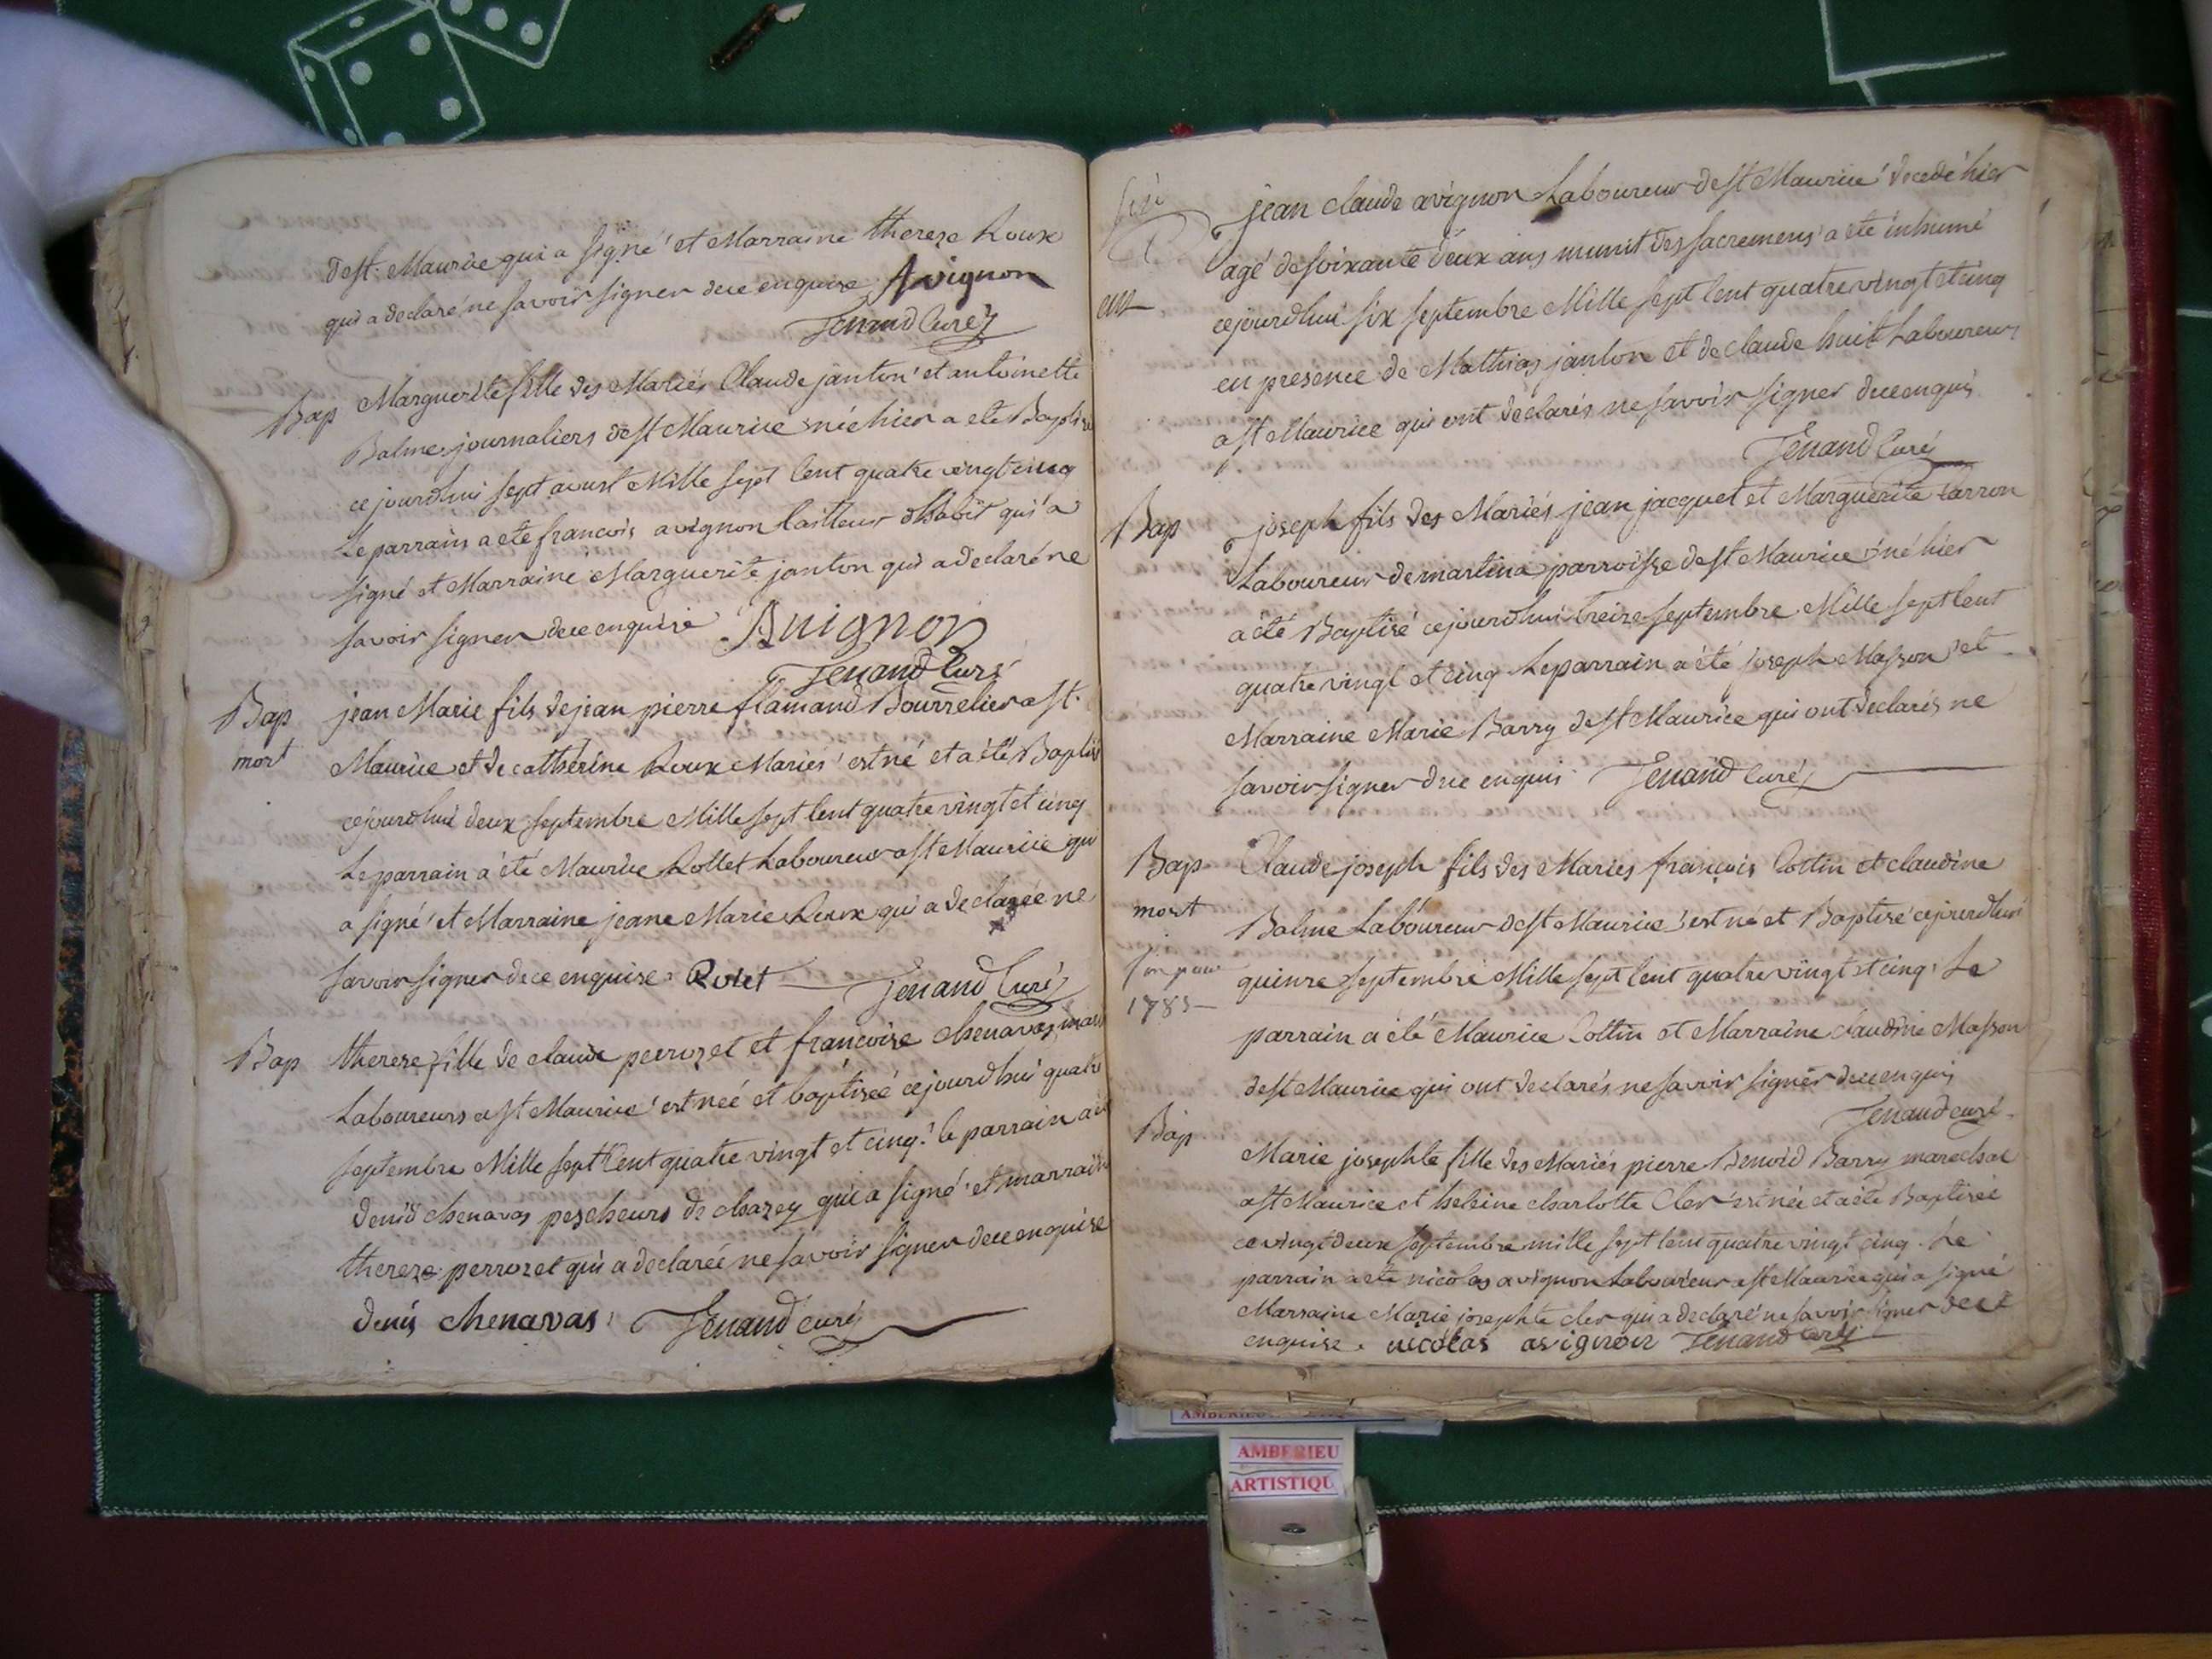 dest. Maurice qui a signé et Marraine thereze Roux
qui a declaré ne savoir signer dece enquise Avignon
Jenand Curé
Bap Marguerite fille des Mariés Claude janton et antoinette
Balme journaliers dest Maurice née hier a eté Baptisé
ce jourdhui sept aoust Mille sept Cent quatre vingt cinq
Le parrain a eté francois avignon tailleur dhabit qui a
signé et Marraine Marguerite janton qui a declaré ne
savoir signer dece enquise Auignon
Jenand Curé
Bap jean Marie fils de jean pierre flamand Bourrelier a st.
mort Maurice et de cathérine Roux Mariés est né et a été Baptisé
cejourdhui deux septembre Mille sept Cent quatre vingt et cinq
Le parrain a été Maurice Rollet Laboureur a st Maurice qui
a signé et Marraine jeane Marie Roux qui a declarée ne
savoir signer dece enquise Rolet Jenand Curé
Bap therese fille de claude perrozet et francoise chenavas mari
Laboureurs a st Maurice est née et baptiseé cejourdhui quatre
septembre Mille sept Cent quatre vingt et cinq. le parrain a été
denis chenavas pescheurs de chazey qui a signé et marraine
thereze perrozet qui a declarée ne savoir signer dece enquise
denis chenavas Jenand curé
jean claude avignon Laboureur de st Maurice decedé hier
agé de soixante deux ans munit des sacremens a été inhumé
cejourdhui six septembre Mille sept Cent quatre vingt et cinq
en presence de Mathias janton et de claude huit Laboureurs
a st Maurice qui ont declarés ne savoir signer dece enquis
Jenand Curé
Bap joseph fils des Mariés jean jacquet et Marguerite Carron
Laboureur de martina parroisse de st Maurice né hier
a été Baptisé cejourdhui treize septembre Mille sept Cent
quatre vingt et cinq Le parrain a été joseph Masson et
Marraine Marie Barry de st Maurice qui ont declarés ne
savoir signer dece enquis Jenand Curé
Bap Claude joseph fils des Mariés françois Cottin et claudine
mort Balme Laboureur de st Maurice est né et Baptisé cejourdhui
quinze septembre Mille sept Cent quatre vingt et cinq Le
1785 parrain a été Maurice Cottin et Marraine claudine Masson
de st Maurice qui ont declarés ne savoir signer dece enquis
Jenand curé
Bap Marie josephte fille des Mariés pierre Benoid Barry marechal
a st Maurice et heleine charlotte Cler est née et a été Baptisée
ce vingt deux septembre mille sept Cent quatre vingt cinq. Le
parrain a eté nicolas avignon Laboureur a st Maurice qui a signé
Marraine Marie josephte cler qui a declaré ne savoir signer dece
enquise. nicolas avignon Jenand curé
AMBERIEU
ARTISTIQU